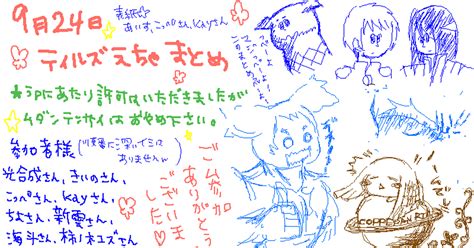 9月24日
表紙☆
あいす、こっぺさん、kayさん
ティルズえちゃ まとめ
★うpにあたり許可はいただきましたが
ムダンテンサイはおやめ下さい。
参加者様(順番に深いイミは
ありませんん)
光合成さん、きいのさん、
こっぺさん、kayさん、
ちよさん、新雲さん、
海斗さん、柿ノ木ユズさん
ご参加
ありがとう
ございま
した!